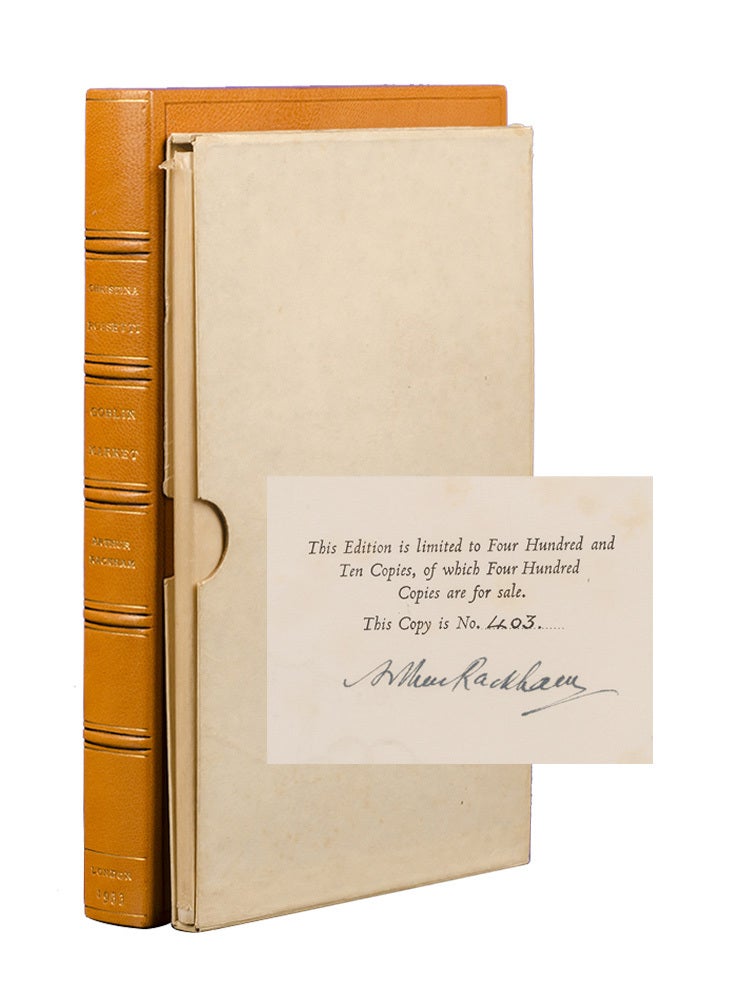 CHRISTINA
ROSSETTI
GOBLIN
MARKET
ARTHUR
RACKHAM
LONDON
1933
This Edition is limited to Four Hundred and
Ten Copies, of which Four Hundred
Copies are for sale.
This Copy is No. 403.
Arthur Rackham